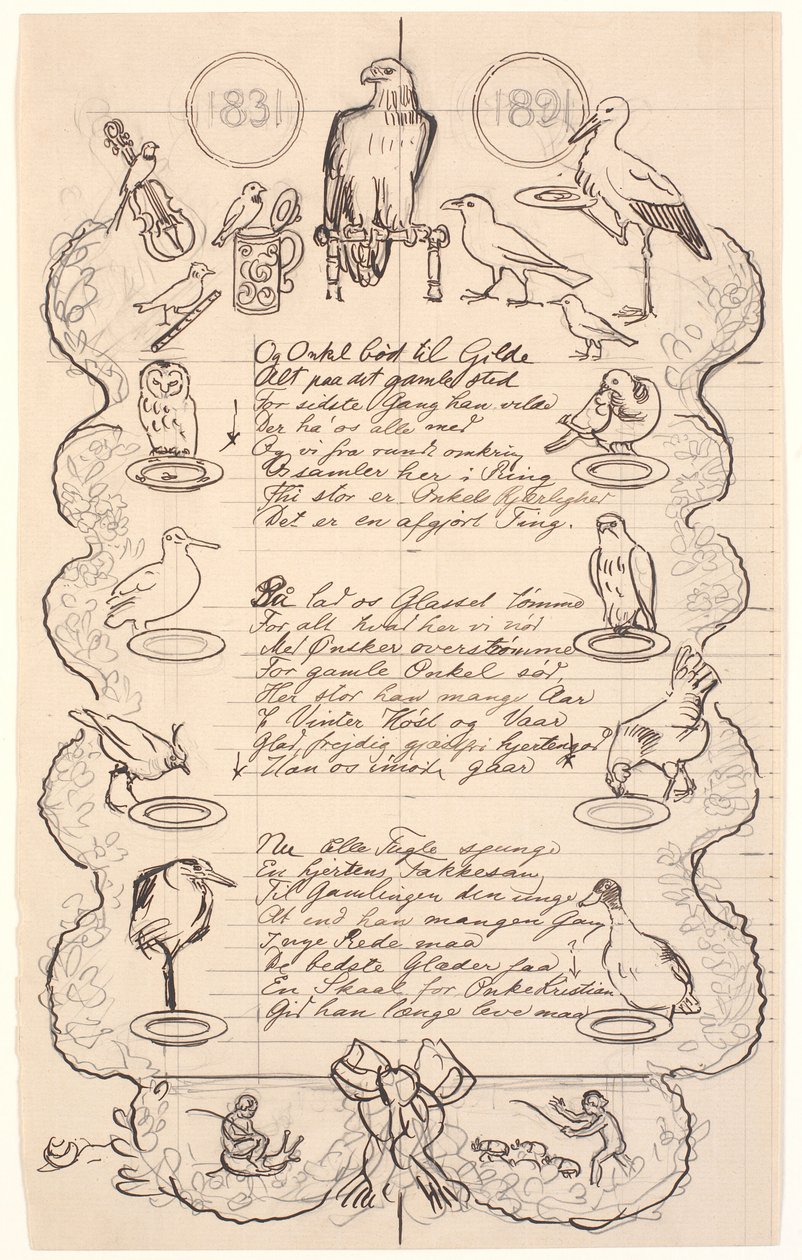 1831 1891
Og Onkel bød til Gilde
Alt paa det gamle sted
For sidste Gang han vilde
Der ha' os alle med
Og vi fra rundt omkring
Os samler her i Ring
Thi stor er Onkels Kjærlighed
Det er en afgjort Ting.
Så lad os Glasset tømme
For alt hvad her vi nød
Med Ønsker overstrømme
For gamle Onkel sød,
Her stod han mange Aar
I Vinter Høst og Vaar
Glad, frejdig hjertengod
Han os imøde gaar
Nu alle Fugle sjunge
En hjertens Takkesang
Til Gamlingen den unge
At end han mangen Gang
I nye Rede maa
De bedste Glæder faa
?
En Skaal for Onkel Kristian
Gid han længe leve maa